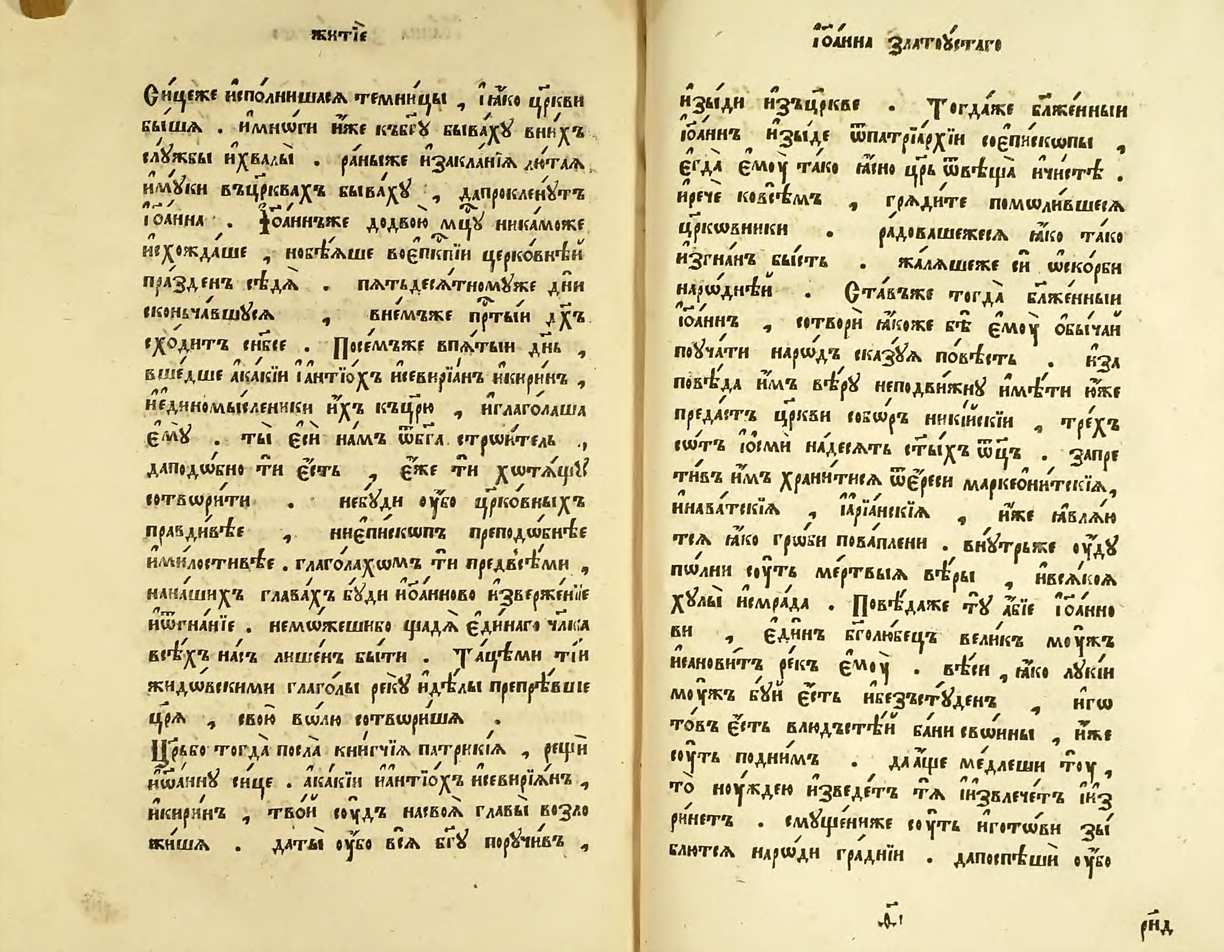 житїе
Сицеже исполнишася темницы , їꙗко цр҃кви
бышꙗ . имнѡги иже къбг҃у быва́ху вни́хъ
слу́жбы ихвалы̀ . ра́ныже изакланїѧ лю́таѧ
иму́ки въцр҃квахъ быва́ху , дапроклену́тъ
їѡ҃анна . Їѡ҃аннъже додвою̀ мцⷭ҇у ника́може
исхожда́ше , нобѣ́ѧше воепⷭ҇кпїи церко́внѣй
пра́зденъ сѣ́дѧ . пѧтьдесѧ́тномуже дн҃и
сконьча́вшусѧ , вне́мъже прⷭ҇тыи дх҃ъ
схо́дитъ снб҃се . Посе́мъже впѧ́тыи дн҃ь ,
вше́дше ака́кїи їантїо́хъ исевирїа́нъ икири́нъ ,
иединомы́сленики и́хъ къцр҃ю , иглаго́лаша
ему̀ . ты̀ есѝ на́мъ ѿбг҃а стрѡи́тель ,
даподѡ́бно тѝ е́сть , е́же тѝ хотѧ́щу
сотвори́ти . небу́ди оу҆́бо цр҃ко́вныхъ
правди́вѣе , ниепи́скопъ преподѡ́бнѣе
имлⷭ҇тивѣе . глаго́лахѡмъ тѝ предвсѣ́ми ,
нана́шихъ глава́хъ бу́ди иѡ҃анново изверже́нїе
иѿгна́нїе . немо́жешибо щадѧ̀ еди́наго чл҃ка
всѣ́хъ на́съ лише́нъ бы́ти . Таце́ми ті́и
жидѡ́вскими глаго́лы реку̀ идѣ́лы препрѣ́вше
цр҃ѧ , свою̀ во́лю сотвори́шѧ .
Цр҃ьбо тогда̀ посла̀ кни́гчїѧ патрикїѧ , рещѝ
иѡ҃анну си́це . ака́кїи иантїо́хъ исевирїѧ́нъ ,
икири́нъ , тво́й соу́дъ насвоѧ̀ главы̀ возло
жи́шѧ . даты̀ оу҆́бо всѧ̀ бг҃у пору́чивъ ,
їѡ҃анна златоу́стаго
изы́ди изъцр҃кве . Тогда́же бл҃же́нныи
їѡ҃аннъ изы́де ѿпатрїа́рхїи соепи́скопы ,
егда̀ емоу̀ та́ко ꙗ́сно цр҃ь ѿвѣща̀ ичи́стѣ .
иречѐ ковсѣ́мъ , грѧди́те помоли́вшесѧ
цр҃ко́вники . ра́довашежесѧ ꙗ́ко та́ко
изгна́нъ бы́сть . жа́лѧшеже сѝ ѡско́рби
наро́днѣй . Ста́въже тогда̀ бл҃же́нныи
їѡ҃аннъ , сотворѝ ꙗ́коже бѣ̀ емоу̀ обы́чай
поуча́ти наро́дъ сказу́ѧ по́вѣсть . иза
повѣ́да и́мъ вѣ́ру неподви́жну имѣ́ти ю́же
преда́стъ цр҃кви собо́ръ никі́искїи , тре́хъ
со́тъ їосмѝ на́десѧть ст҃ыхъ ѿц҃ъ . запре
ти́въ и́мъ храни́тисѧ ѿе́реси маркео́нитскїѧ,
инава́тскїѧ , їарїа́нскїѧ , и́же ꙗвлѧ́ю
тсѧ ꙗ́ко гро́би пова́плени . вну́трьже оу҆́ду
по́лни соу́ть ме́ртвыѧ вѣ́ры , ивсѧ́коѧ
хулы̀ исмра́да . Повѣ́даже ту̀ а́бїе їѡ҃анно
ви , еди́нъ бг҃олю́бецъ вели́къ моу́жъ
исанови́тъ ре́къ емоу̀ . вѣ́си , ꙗ́ко лукі́и
моу́жъ бу́й е́сть ибезъсту́денъ , иго
то́въ е́сть влюдьстѣ́й ба́ни сво́ины , и́же
соу́ть подни́мъ . даа́ще ме́длеши тоу̀ ,
то̀ ноу́ждею изведе́тъ тѧ̀ їизвлече́тъ їиз
ри́нетъ . смуще́ниже соу́ть игото́ви зы́
блютсѧ наро́ди гра́днїи . дапоспѣшѝ оу҆́бо
рн҃д